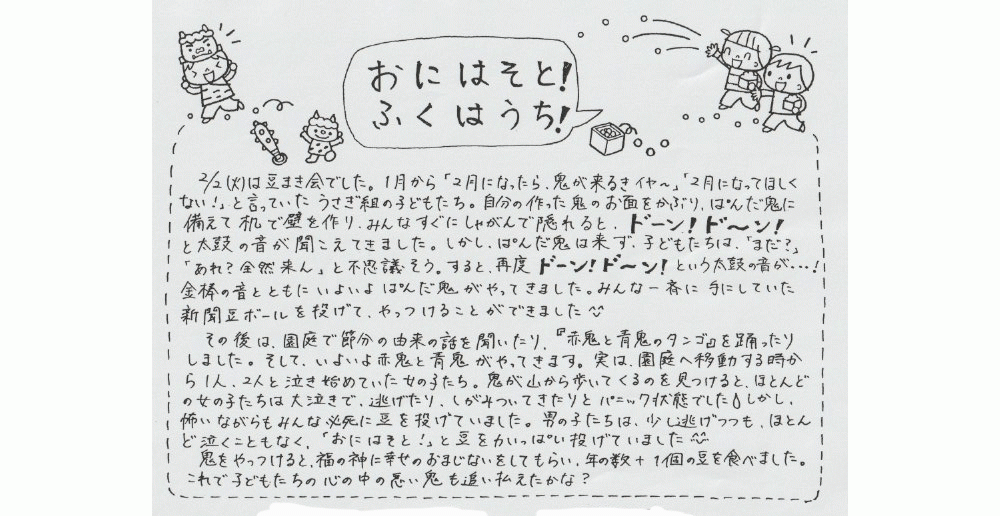 おにはそと!
ふくはうち!
2/2(火)は豆まき会でした。1月から「2月になったら、鬼が来るきイヤ〜」「2月になってほしく
ない!」と言っていたうさぎ組の子どもたち。自分の作った鬼のお面をかぶり、ぱんだ鬼に
備えて机で壁を作り、みんなすぐにしゃがんで隠れると、ドーン!ド〜ン!
と太鼓の音が聞こえてきました。しかし、ぱんだ鬼は来ず、子どもたちは、「まだ?」
「あれ?全然来ん」と不思議そう。すると、再度ドーン!ド〜ン!という太鼓の音が…!
金棒の音とともにいよいよぱんだ鬼がやってきました。みんな一斉に手にしていた
新聞豆ボールを投げて、やっつけることができました
その後は、園庭で節分の由来の話を聞いたり、『赤鬼と青鬼のタンゴ』を踊ったり
しました。そして、いよいよ赤鬼と青鬼がやってきます。実は、園庭へ移動する時か
ら1人、2人と泣き始めていた女の子たち。鬼が山から歩いてくるのを見つけると、ほとんど
の女の子たちは大泣きで、逃げたり、しがみついてきたりとパニック状態でしたしかし、
怖いながらもみんな必死に豆を投げていました。男の子たちは、少し逃げつつも、ほとん
ど泣くこともなく、「おにはそと!」と豆を力いっぱい投げていました
鬼をやっつけると、福の神に幸せのおまじないをしてもらい、年の数+1個の豆を食べました。
これで子どもたちの心の中の悪い鬼も追い払えたかな?